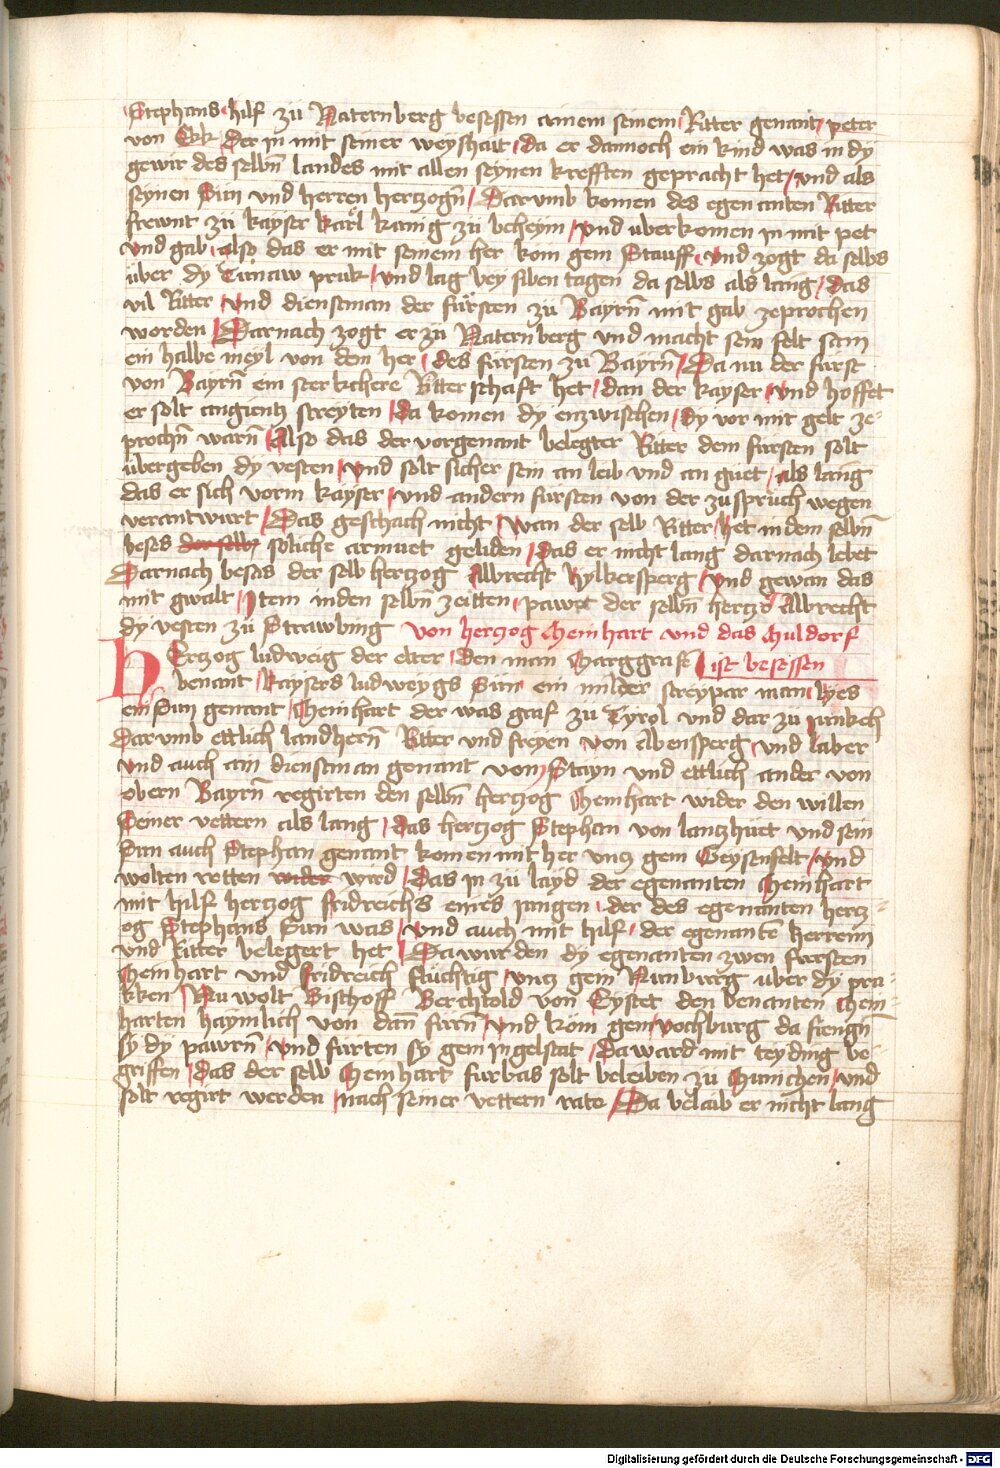 Stephans hilf zu Naternberg besessen ainem seinem Ritter genant peter
von Ekk der in mit seiner weyshait Da er dannoch ein kind was in dy
gewir des selbn̄ landes mit allen seynen krefften gepracht het und als
seynen Sun und herren hertzogn̄ Darumb komen des egenanten Ritter
frewnt zu kayser karl kunig zu beheym und uberkomen in mit pet
und gab also das er mit seinem her kom gem Stauff und zogt da selbs
uber dy Tunaw pruk und lag bey siben tagen da selbs als lang das
vil Ritter und dienstman der fürsten zu Bayrn̄ mit gab zeprochen
worden Darnach zogt er zu Naternberg und macht sein felt sam
ein halbe meyl von dem her des fursten zu Bayrn̄ Da nu der furst
von Bayrn̄ ein sterkchere Ritterschaft het dan der kayser und hoffet
er solt angientz streyten da komen dy enzwischen dy vor mit gelt ze-
prochn̄ warn̄ Also das der vorgenant belegter Ritter dem fursten solt
ubergeben dy vesten und solt sicher sein an leib und an guet als lang
das er sich vorm kayser und andern fursten von der zuspruch wegen
verantwurt Das geschach nicht wan der selb Ritter het in dem selbn̄
beses der selb soliche armuet geliden das er nicht lang darnach lebet
Darnach besas der selb hertzog Albrecht kylbersperg und gewan das
mit gwalt Item in den selbn̄ zeitten pawet der selbn̄ hertzog Albrecht
dy vesten zu Strawbing von hertzog Meinhart und das Muldorf
HErtzog ludweig der elter den man Marggraff ist besessen
benant kaysers ludweygs Sun ein milder streypar man lyes
ein Sun genant Meinhart der was graf zu Tyrol und dar zu junkch
Darumb ettlich landhern̄ Ritter und freyen von Abensperg und laber
und auch ain dienstman genant vom Stayn und ettlich ander von
obern Bayrn̄ regirten den selbn̄ hertzog Meinhart wider den willen
Seiner vettern als lang das hertzog Stephan von lantzhuet und sein
Sun auch Stephan genant komen mit her untz gem Geysenfelt und
wolten retten wider wird Das in zu layd der egenanten Meinhart
mit hilf hertzog fridreichs eines jungen der des egenanten hertz-
og Stephans Sun was und auch mit hilf der egenanten herrenn
und Ritter belegert het Da wurden dy egenanten zwen fursten
Meinhart und fridreich fluchtig untz gem Nunburg uber dy pru-
kken Nu wolt Bischoff Berchtold von Eystet den benanten Mein-
harten haymlich von dan̄ furn̄ und kom gem vochburg da fiengn̄
sy dy pawrn̄ und furten sy gem Ingelstat da ward mit teyding be-
griffen das der selb Meinhart furbas solt beleiben zu Munichen und
solt regirt werden nach seiner vettern rate Da belaib er nicht lang
Digitalisierung gefördert durch die Deutsche Forschungsgemeinschaft - DFG